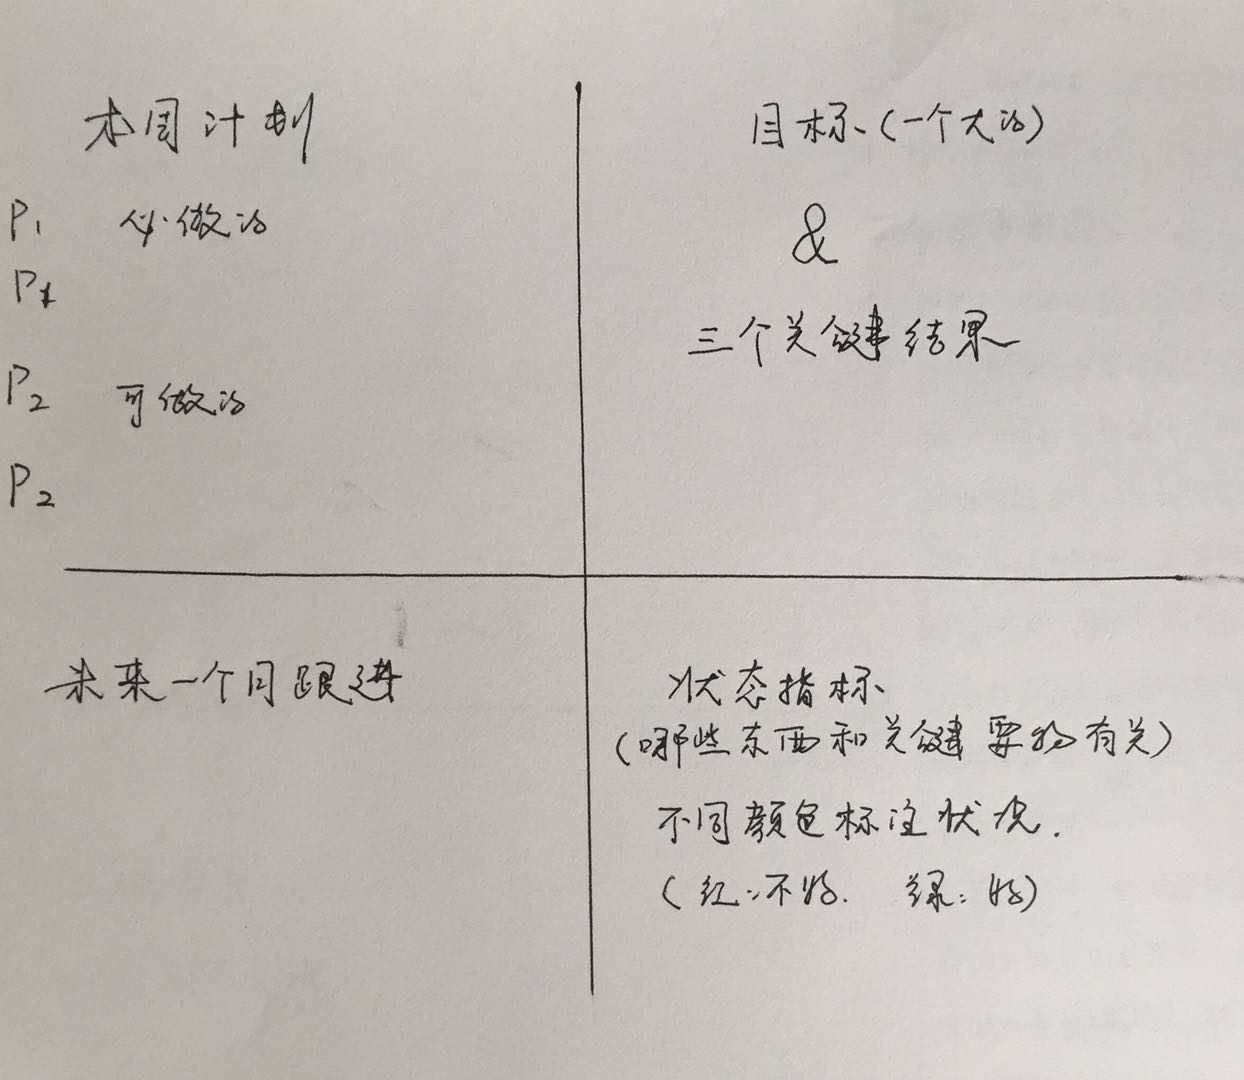 本周计划
P1 必做的
P1
P2 可做的
P2
目标(一个大的)
&
三个关键结果
未来一个月跟进
状态指标
(哪些东西和关键要物有关)
不同颜色标注状况.
(红:不好. 绿:好)